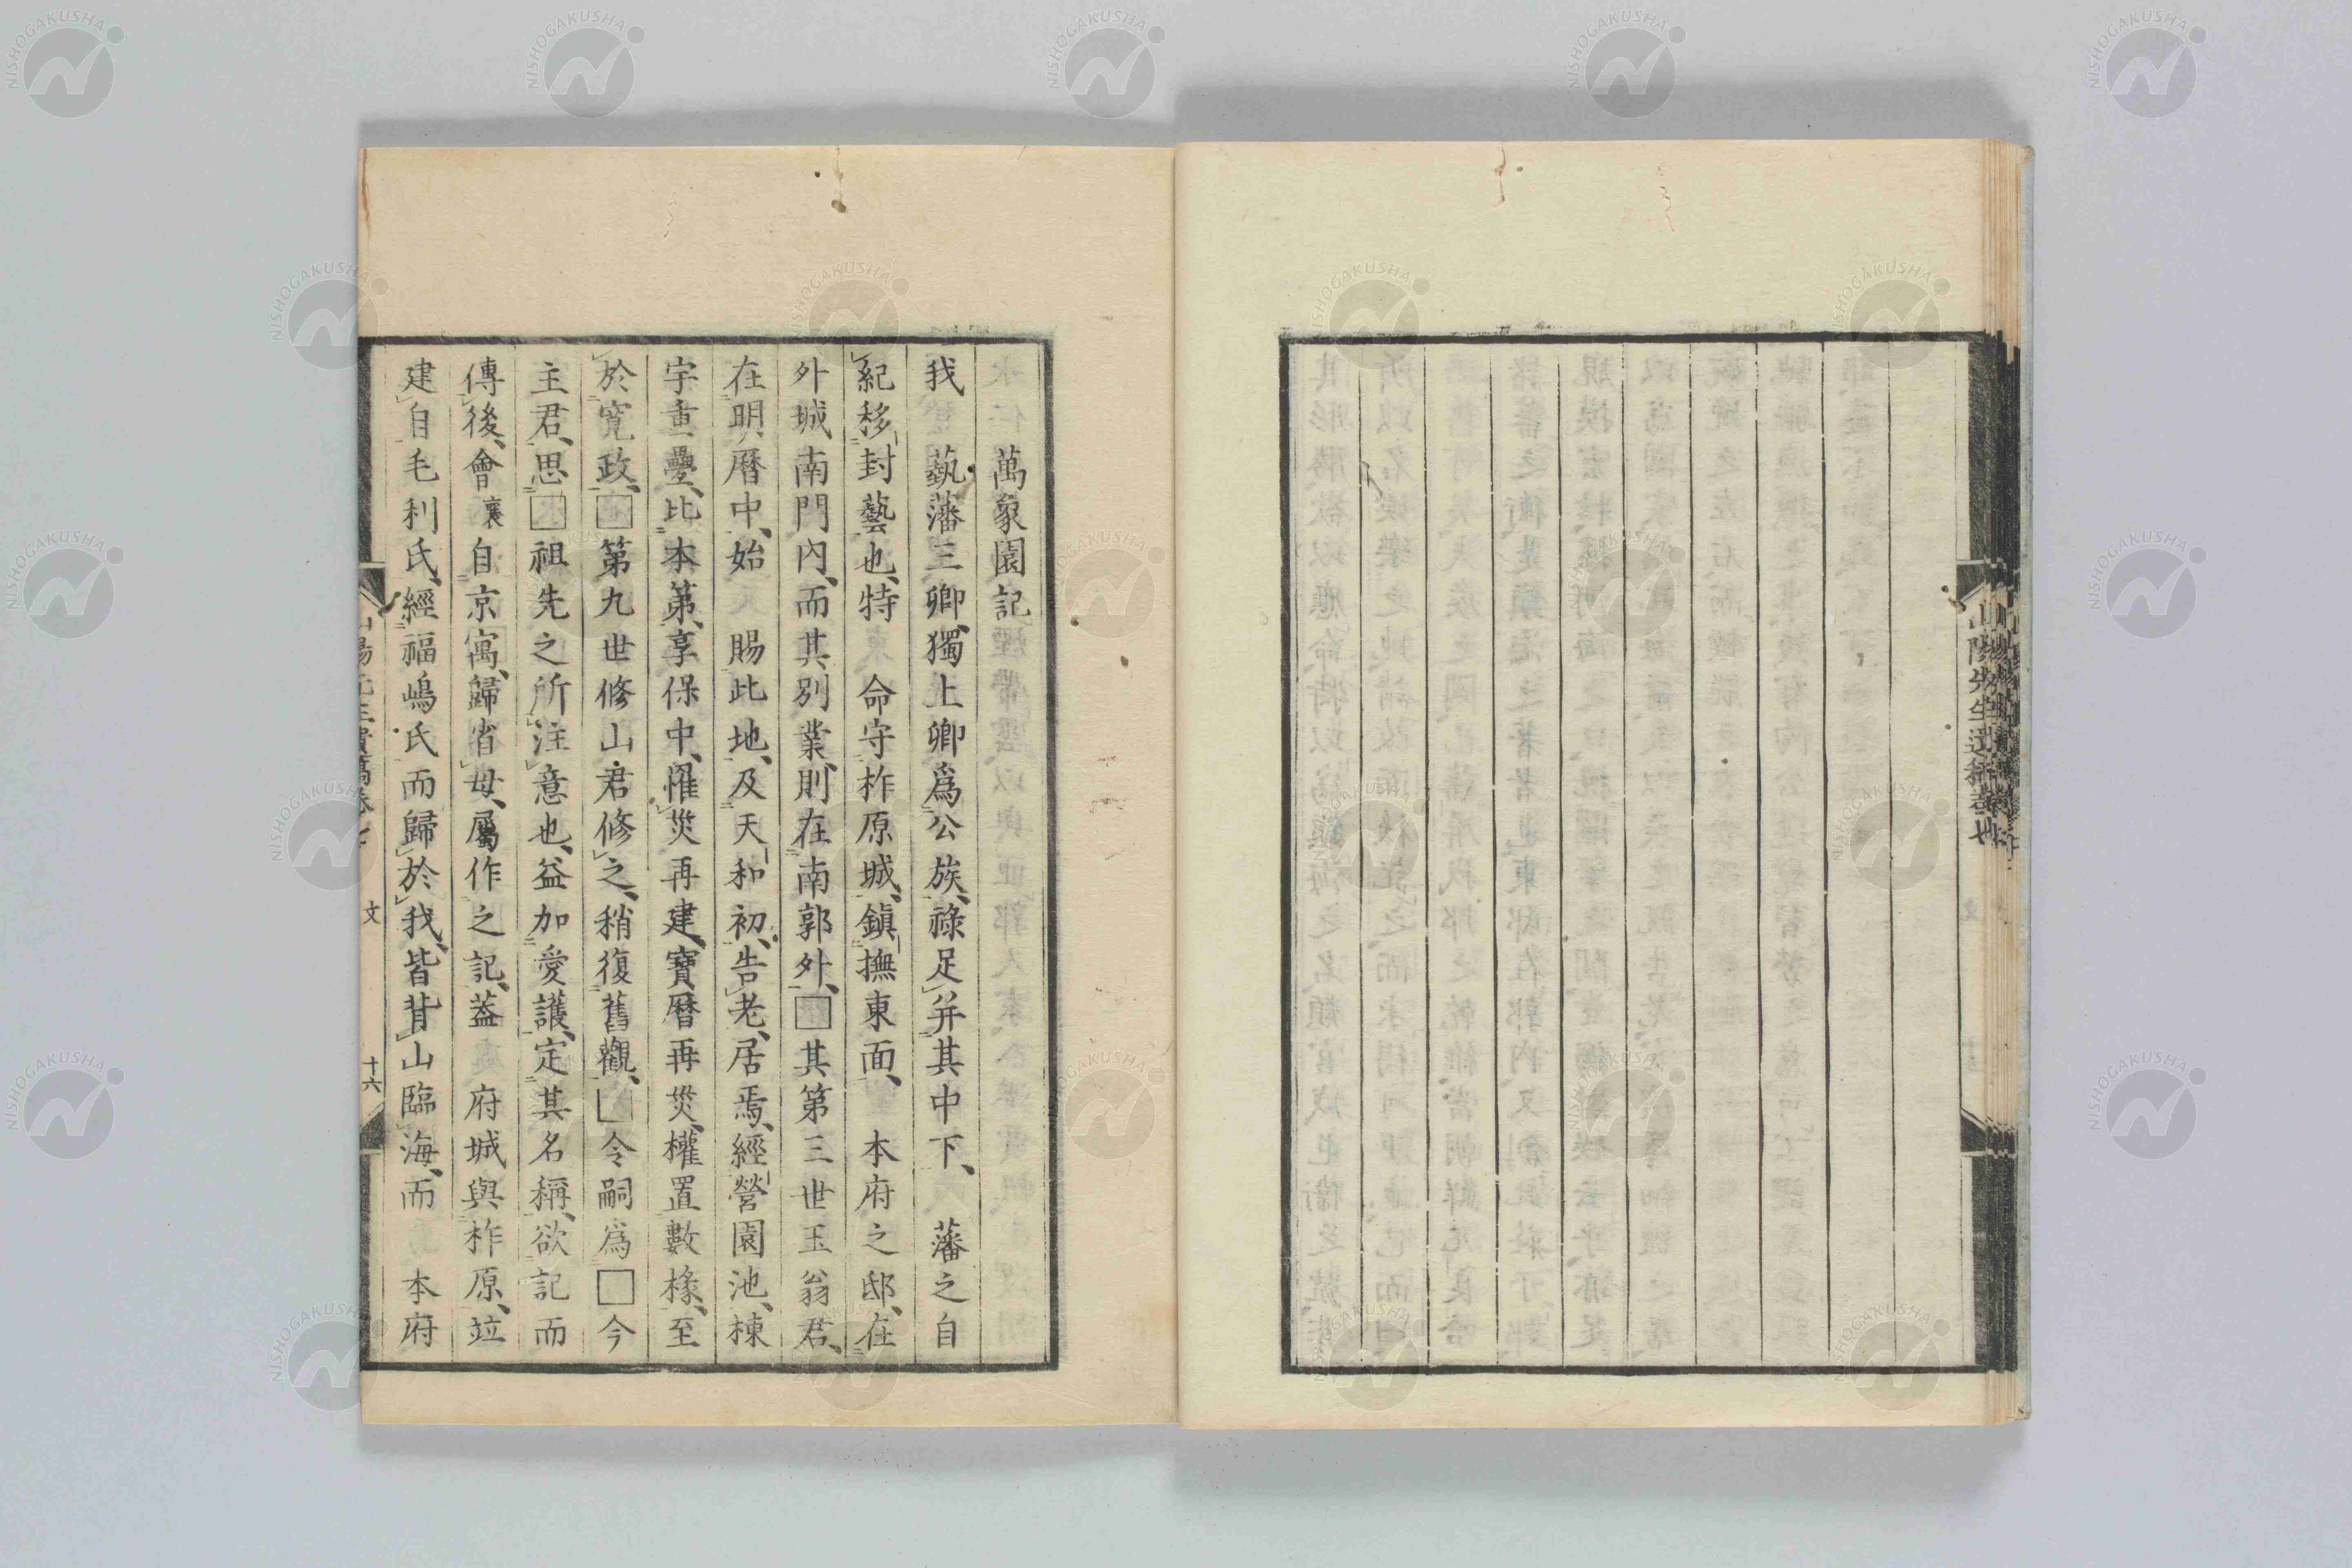 山陽先生遺稿卷七
萬象園記
我　藝藩三卿、獨上卿爲公族、祿足并其中下、　藩之自
紀移封藝也、特　命守柞原城、鎮撫東面、　本府之邸、在
外城南門內、而其別業、則在南郭外、□其第三世玉翁君、
在明曆中、始　賜此地、及天和初、告老、居焉、經營園池、棟
宇重疊、比本第、享保中、罹災再建、寶曆再災、權置數椽、至
於寬政、□第九世修山君修之、稍復舊觀、□令嗣爲□今
主君、思□祖先之所注意也、益加愛護、定其名稱、欲記而
傳後、會襄自京寓、歸省母、屬作之記、蓋　府城與柞原、竝
建自毛利氏、經福嶋氏而歸於我、皆背山臨海、而　本府
文
十六